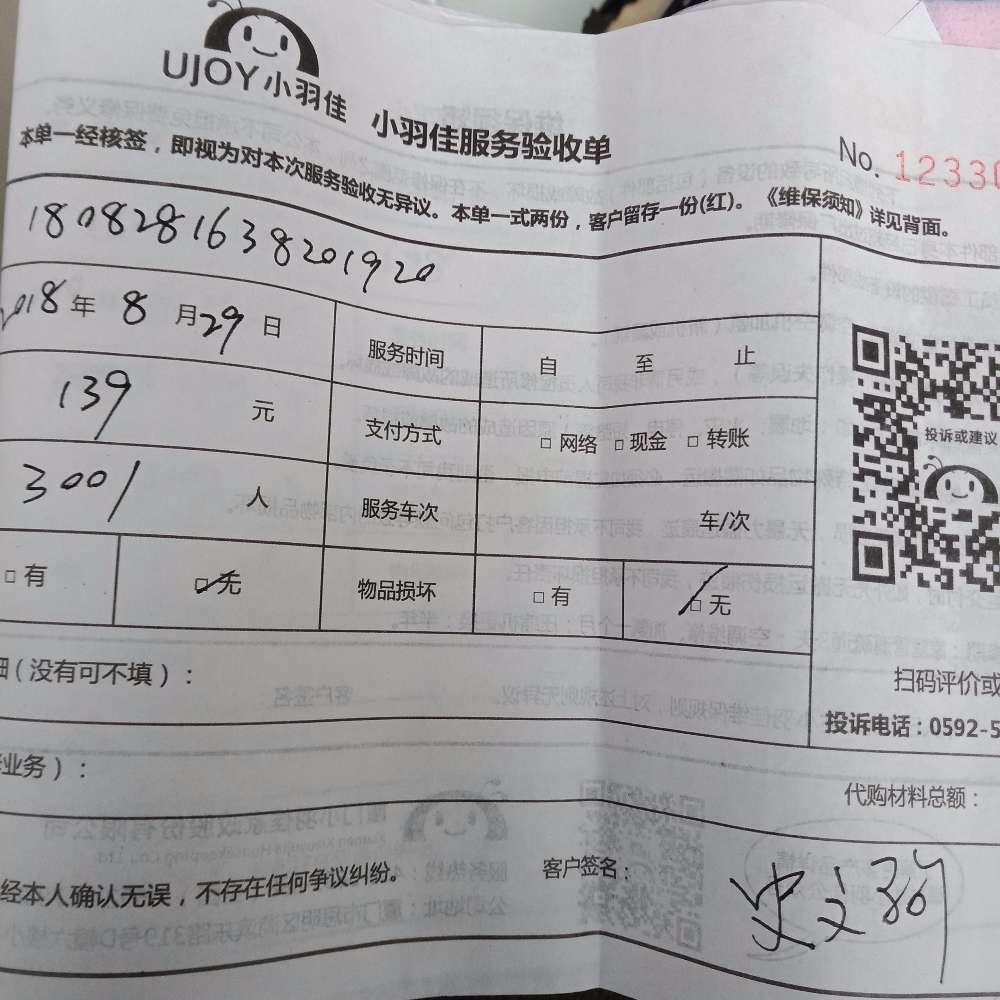 UJOY小羽佳
小羽佳服务验收单
No. 12330
本单一经核签，即视为对本次服务验收无异议。本单一式两份，客户留存一份(红)。《维保须知》详见背面。
1808281638201920
2018年8月29日 服务时间 自 至 止
139元 支付方式 □网络 □现金 □转账
3001人 服务车次 车/次
□有 □无 物品损坏 □有 □无
投诉或建议
细（没有可不填）：
扫码评价或
投诉电话：0592-5
业务）：
代购材料总额：
经本人确认无误，不存在任何争议纠纷。
客户签名：